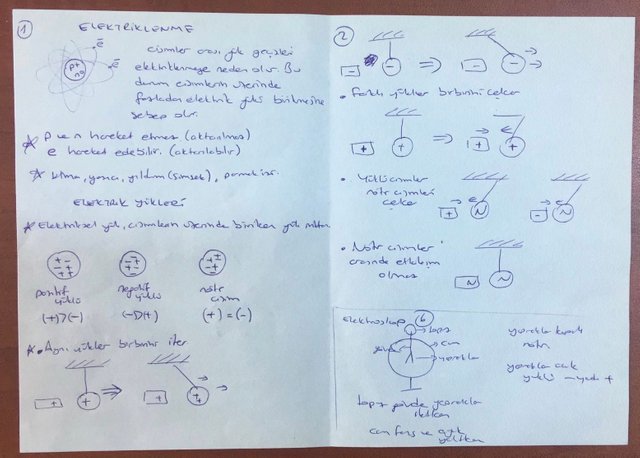 1
ELEKTRİKLENME
e⁻
e⁻
P+
n0
cisimler arası yük geçişleri
elektriklenmeye neden olur. Bu
durum cisimlerin üzerinde
fazladan elektrik yükü birikmesine
sebep olur.
P ve n hareket etmez (aktarılmaz)
e hareket edebilir. (aktarılabilir)
yıldırım (şimşek), parmak izi
ELEKTRİK YÜKLERİ
Elektriksel yük, cisimlerin üzerinde biriken yük miktarı
pozitif negatif nötr
yüklü yüklü cisim
(+)>(-) (-)>(+) (+)=(-)
Aynı yükler birbirini iter
+ + + ++
2
- - - -
Farklı yükler birbirini çeker
+ + + +
Yüklü cisimler
nötr cisimleri
çeker
+ N - N
Nötr cisimler
arasında etkileşim
olmaz
N N
Elektroskop 6
topuz
cam
gövde
yapraklar
yapraklar kapalı
nötr
yapraklar açık
yüklü
topuz gövde yapraklar
iletken
cam fanus ve
yalıtkan